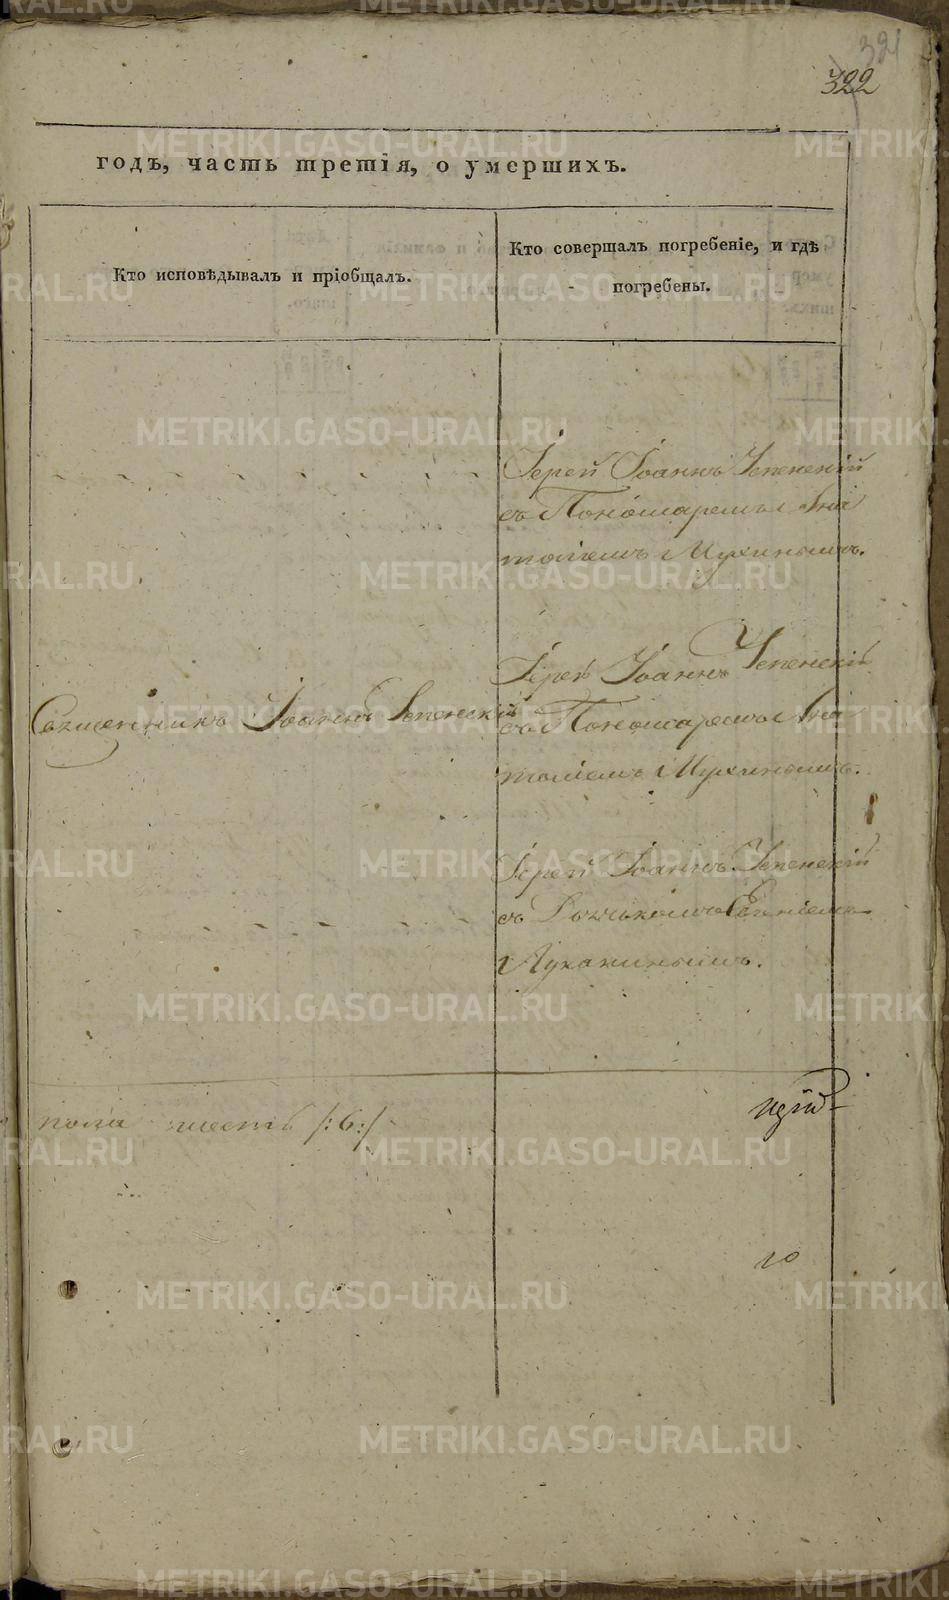 321
322
годъ, часть третія, о умершихъ.
Кто исповѣдывалъ и пріобщалъ.
Кто совершалъ погребеніе, и гдѣ
погребены.
Іерей Іоаннъ Успенскій
съ Пономаремъ Ана
толіемъ Мухинымъ.
Іерей Іоаннъ Успенскій
Священникъ Іоаннъ Успенскій
съ Пономаремъ Ана
толіемъ Мухинымъ.
Іерей Іоаннъ Успенскій
съ Дьячкомъ
Луканинымъ.
пола шесть /:6:/
METRIKI.GASO-URAL.RU